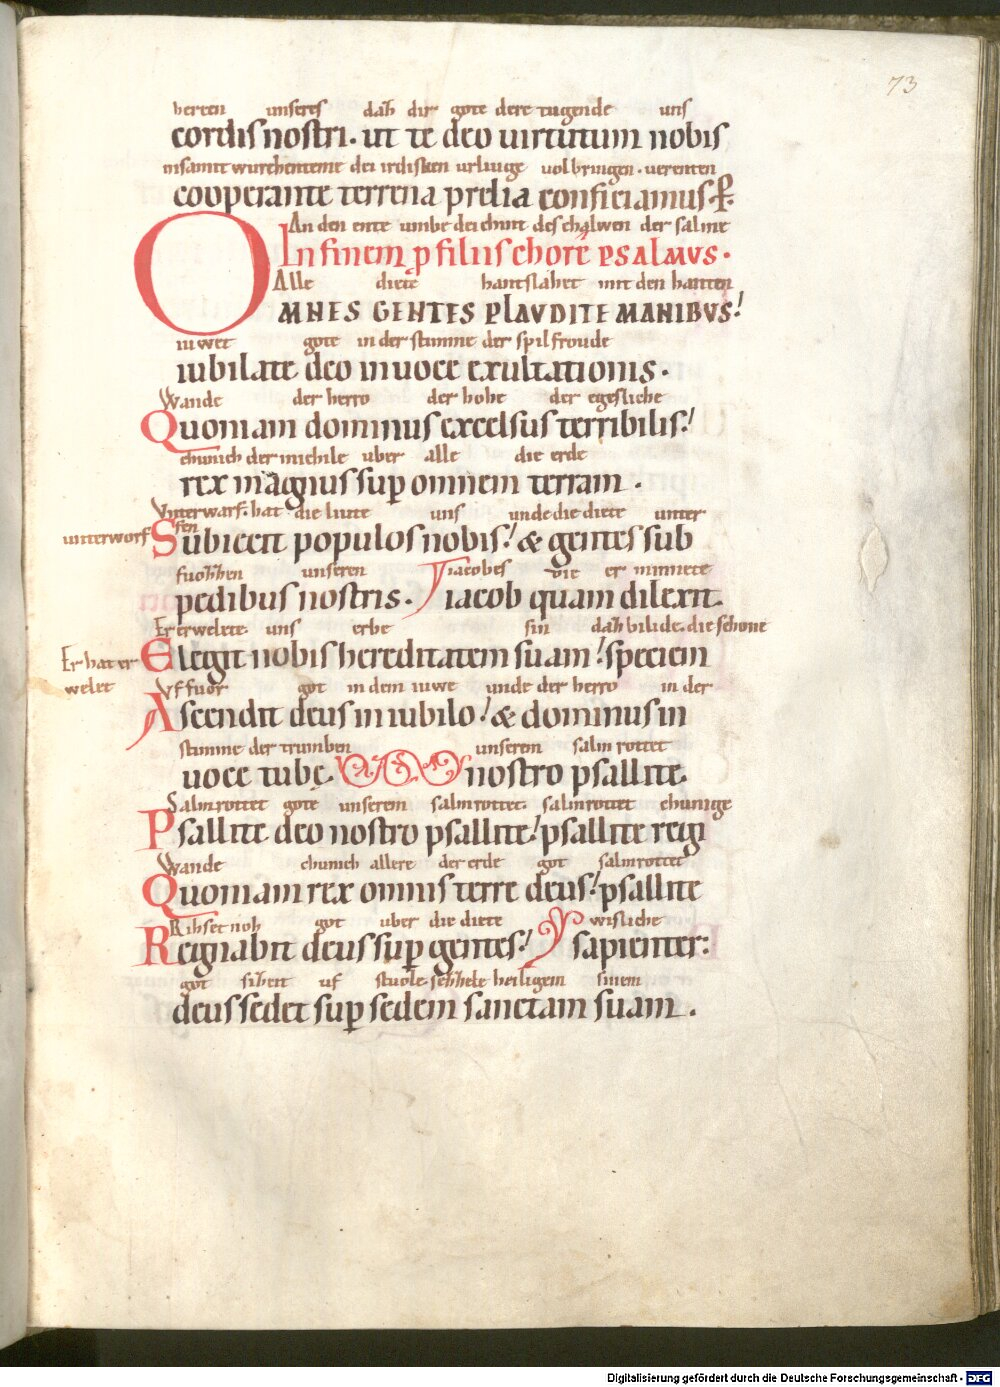 73
herren unseres daʒ dir gote dere tugende uns
cordis nostri. ut te deo uirtutum nobis
misamit wurchenteme dei irdisken urliuge uolbringen. uerenten
cooperante terrena prelia conficiamus. P.
An den ente umbe dei chint des chalwen der salme
In finem p filiis chore PSALMVS.
Alle diete hantslahet mit den hanten
OMNES GENTES PLAVDITE MANIBVS!
iuwet gote in der stimme der spilfroude
iubilate deo in uoce exultationis.
Wande der herro der hohe der egesliche
Quoniam dominus excelsus terribilis!
chunich der michile uber alle die erde
rex magnus sup omnem terram.
Vnterwarf. hat die liute uns unde die diete unter
unterworf fen
Subiecit populos nobis! & gentes sub
fuoʒʒen unseren iacobes die er minnete
pedibus nostris. iacob quam dilexit.
Er erwelete. uns erbe sin daʒ bilide. die schone
Er hat er
Elegit nobis hereditatem suam! speciem
welet Vf fuor got in dem iuwe unde der herro in der
Ascendit deus in iubilo! & dominus in
stimme der trumben unserem salmrottet
uoce tubę. nostro psallite.
Salmrottet gote unserem salmrottet. salmrottet chunige
Psallite deo nostro psallite! psallite regi
Wande chunich allere der erde got salmrottet
Quoniam rex omnis terre deus! psallite
Rihset noh got uber die diete wisliche
Regnabit deus sup gentes! sapienter:
got sibett uf stuole sehhele heiligem sinem
deus sedet sup sedem sanctam suam.
Digitalisierung gefördert durch die Deutsche Forschungsgemeinschaft - DFG